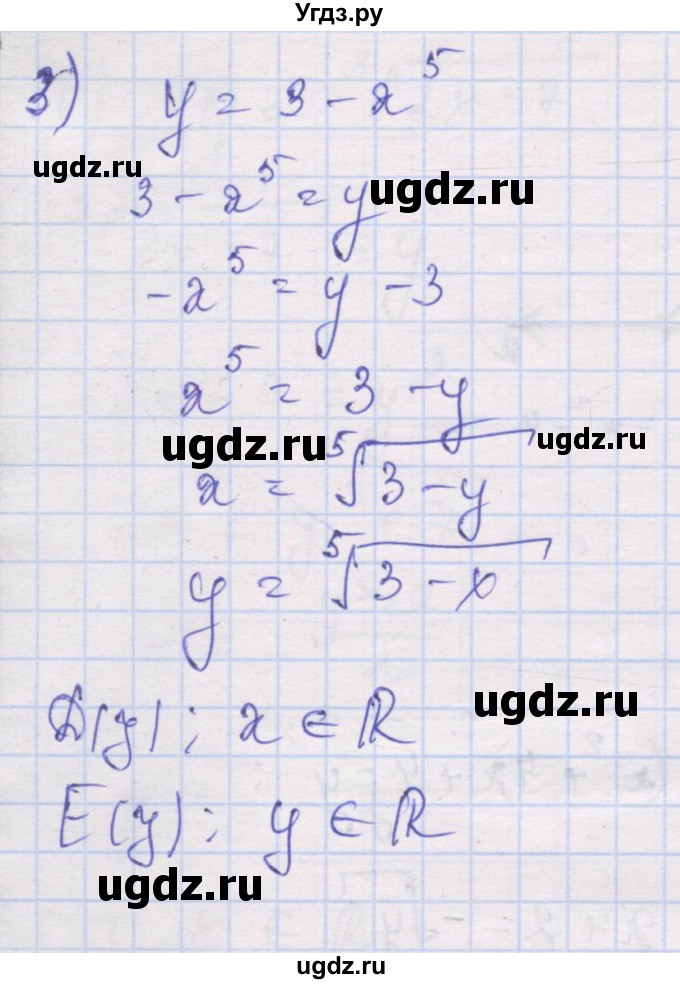 Угдз.ру
3) y = 3 - x⁵
ugdz.ru
3 - x⁵ = y
ugdz.ru
-x⁵ = y - 3
x⁵ = 3 - y
ugdz.ru
ugdz.ru
x = ⁵√(3 - y)
y = ⁵√(3 - x)
ugdz.ru
D(y): x ∈ ℝ
E(y): y ∈ ℝ
ugdz.ru
ugdz.ru